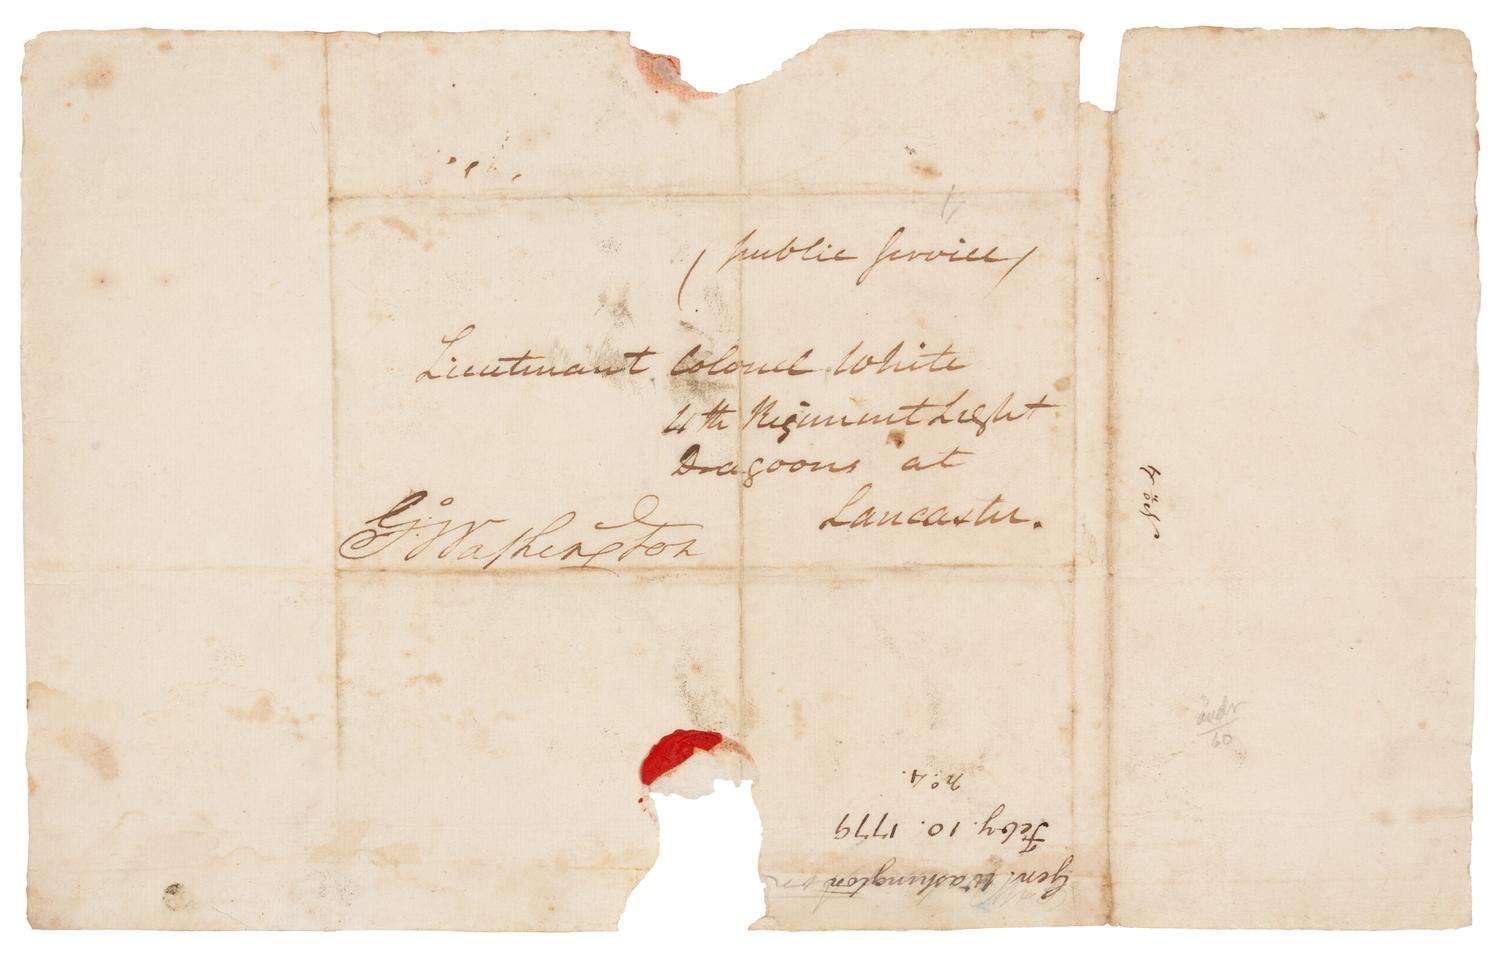 (public Service)
Lieutenant Colonel White
4th Regiment Light
Dragoons at
Lancaster.
Go Washington
No. 4
Genl. Washington
Feby. 10. 1779
No. 4.
60